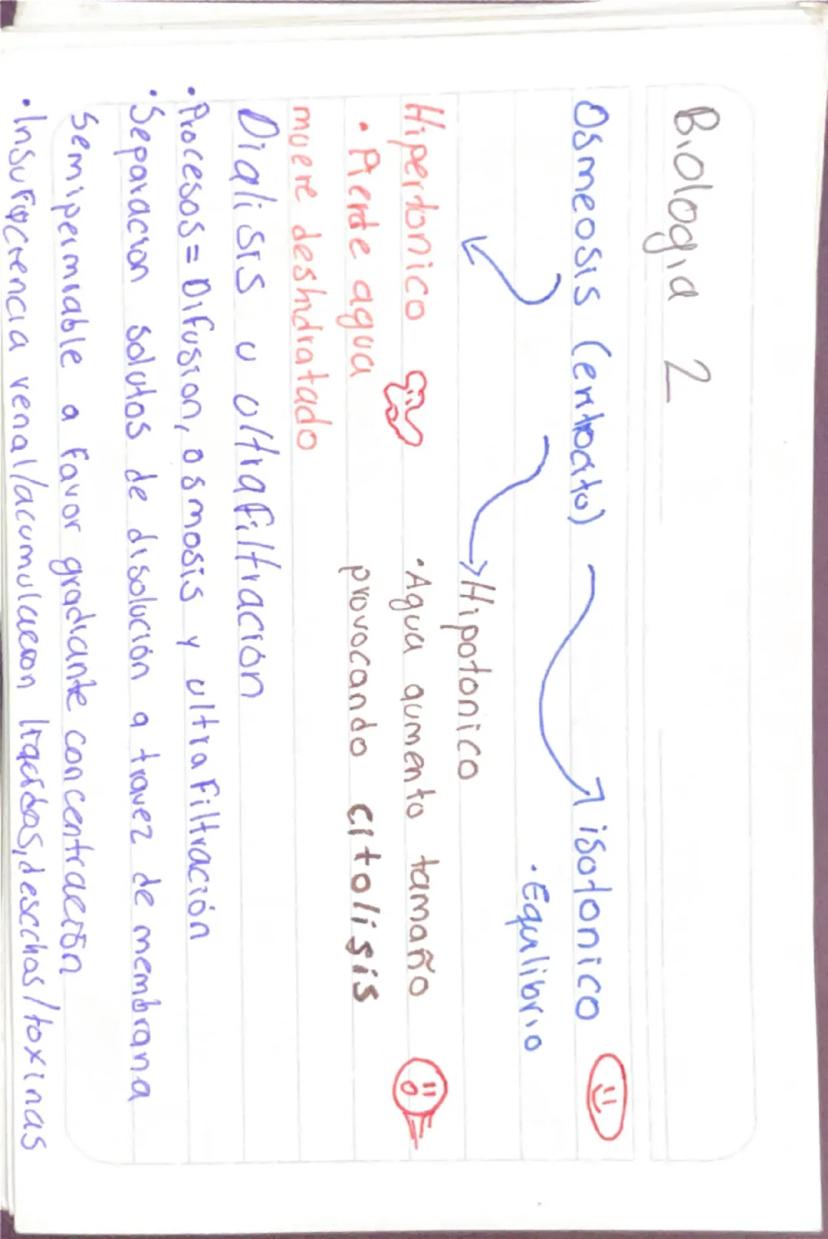 Biologia 2
Osmeosis (eritrocito)
isotonico
• Equlibrio
Hipotonico
• Agua aumento tamaño
provocando citolisis
Hipertonico
• Pierde agua
muere deshidratado
Dialisis u ultrafiltración
• Procesos = Difusion, osmosis y ultrafiltración
• Separacion solutos de disolución a travez de membrana
semipermiable a favor gradiante concentracion
• Insuficiencia renal/acumulacion liquidos, desechos/toxinas